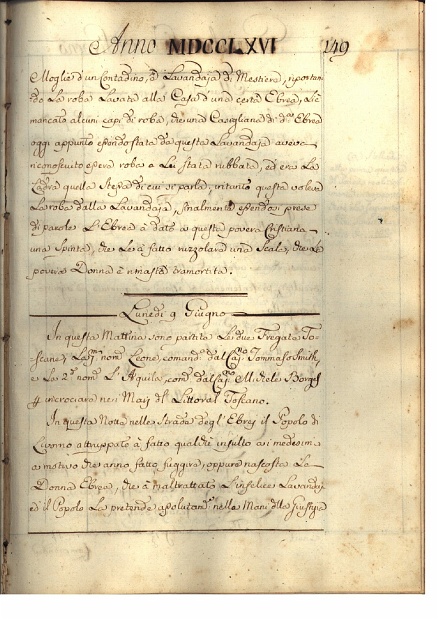 Anno MDCCLXVI 149
Moglie d'un Contadino, è Lavandaja di Mestiere, riportan
do La roba Lavata alla Casa d'una certa Ebrea, L'è
mancato alcuni capi di roba, che una Casigliana di dª Ebrea
oggi appunto essendo stata da questa Lavandaja
riconosciuto essere roba a Lei stata rubbata, ed era La
Ladra quella Stessa di cui si parla, intanto questa voleva
La roba dalla Lavandaja, finalmente essendosi prese
di parole L'Ebrea à dato a questa povera Cristiana
una Spinta, che Le à fatto ruzzolare una Scala, che La
povera Donna è rimasta tramortita.
Lunedi 9 Giugno
In questa Mattina sono partite Le due Fregate To-
scane, La pª nomª Leone, comandª dal Capº Tommaso Smith,
e La 2ª nomª L'Aquila, comª dal Capº Michele
incrociare nei Marj del Littoral Toscano.
In questa Notte nelle Strade degl'Ebrej il Popolo di
Livorno attruppato à fatto qualche insulto a i medesimi
a motivo che anno fatto fuggire, oppure nascosta La
Donna Ebrea, che à maltrattato L'infelice Lavandaja
ed il Popolo La pretende assolutamᵉ nelle Mani della Giustizia